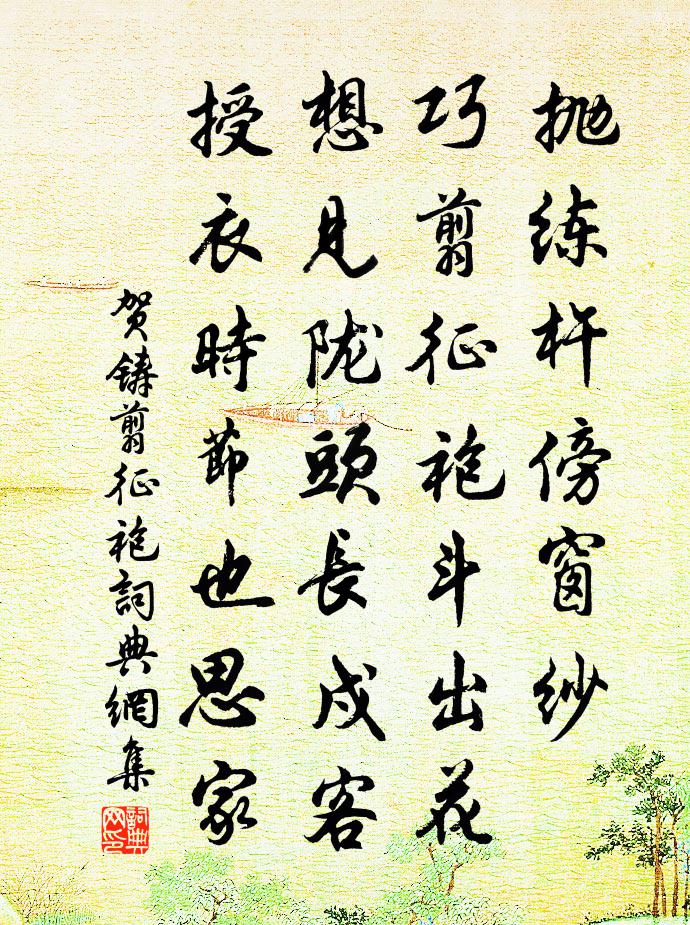 抛练杵傍窗纱
巧剪征袍斗出花
想见陇頭長戍客
授衣時節也思家
贺鑄剪征袍詞典網集
詞典网印